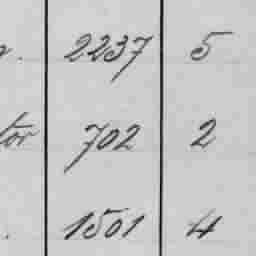 2237 5
tor 702 2
1501 4